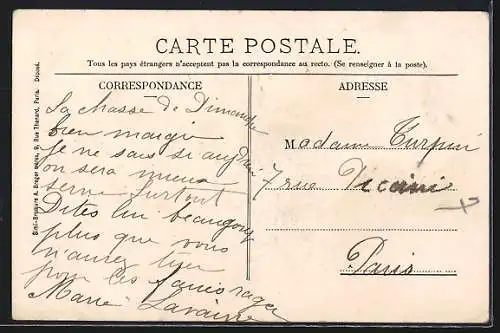 CARTE POSTALE.
Tous les pays étrangers n'acceptent pas la correspondance au recto. (Se renseigner à la poste).
CORRESPONDANCE
La chasse de Dimanche
bien maigre
Je ne sais si aujd'hui
on sera mieux
servi surtout
Dites lui beaucoup
plus que vous
n'aurez
pour les
Marie
ADRESSE
Madame Turpin
7 rue Piccini
Paris
Simili-Gravure A. Breger frères, 9, Rue Thénard, Paris. Déposé.